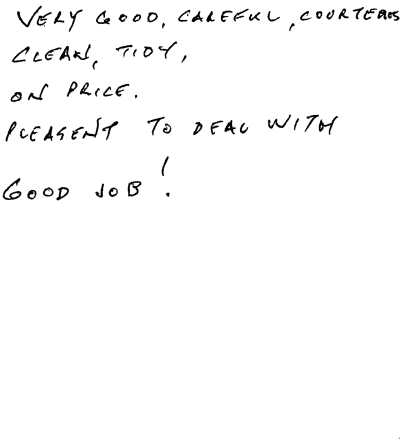 VERY GOOD, CAREFUL, COURTEOUS
CLEAN, TIDY,
ON PRICE.
PLEASENT TO DEAL WITH
GOOD JOB!